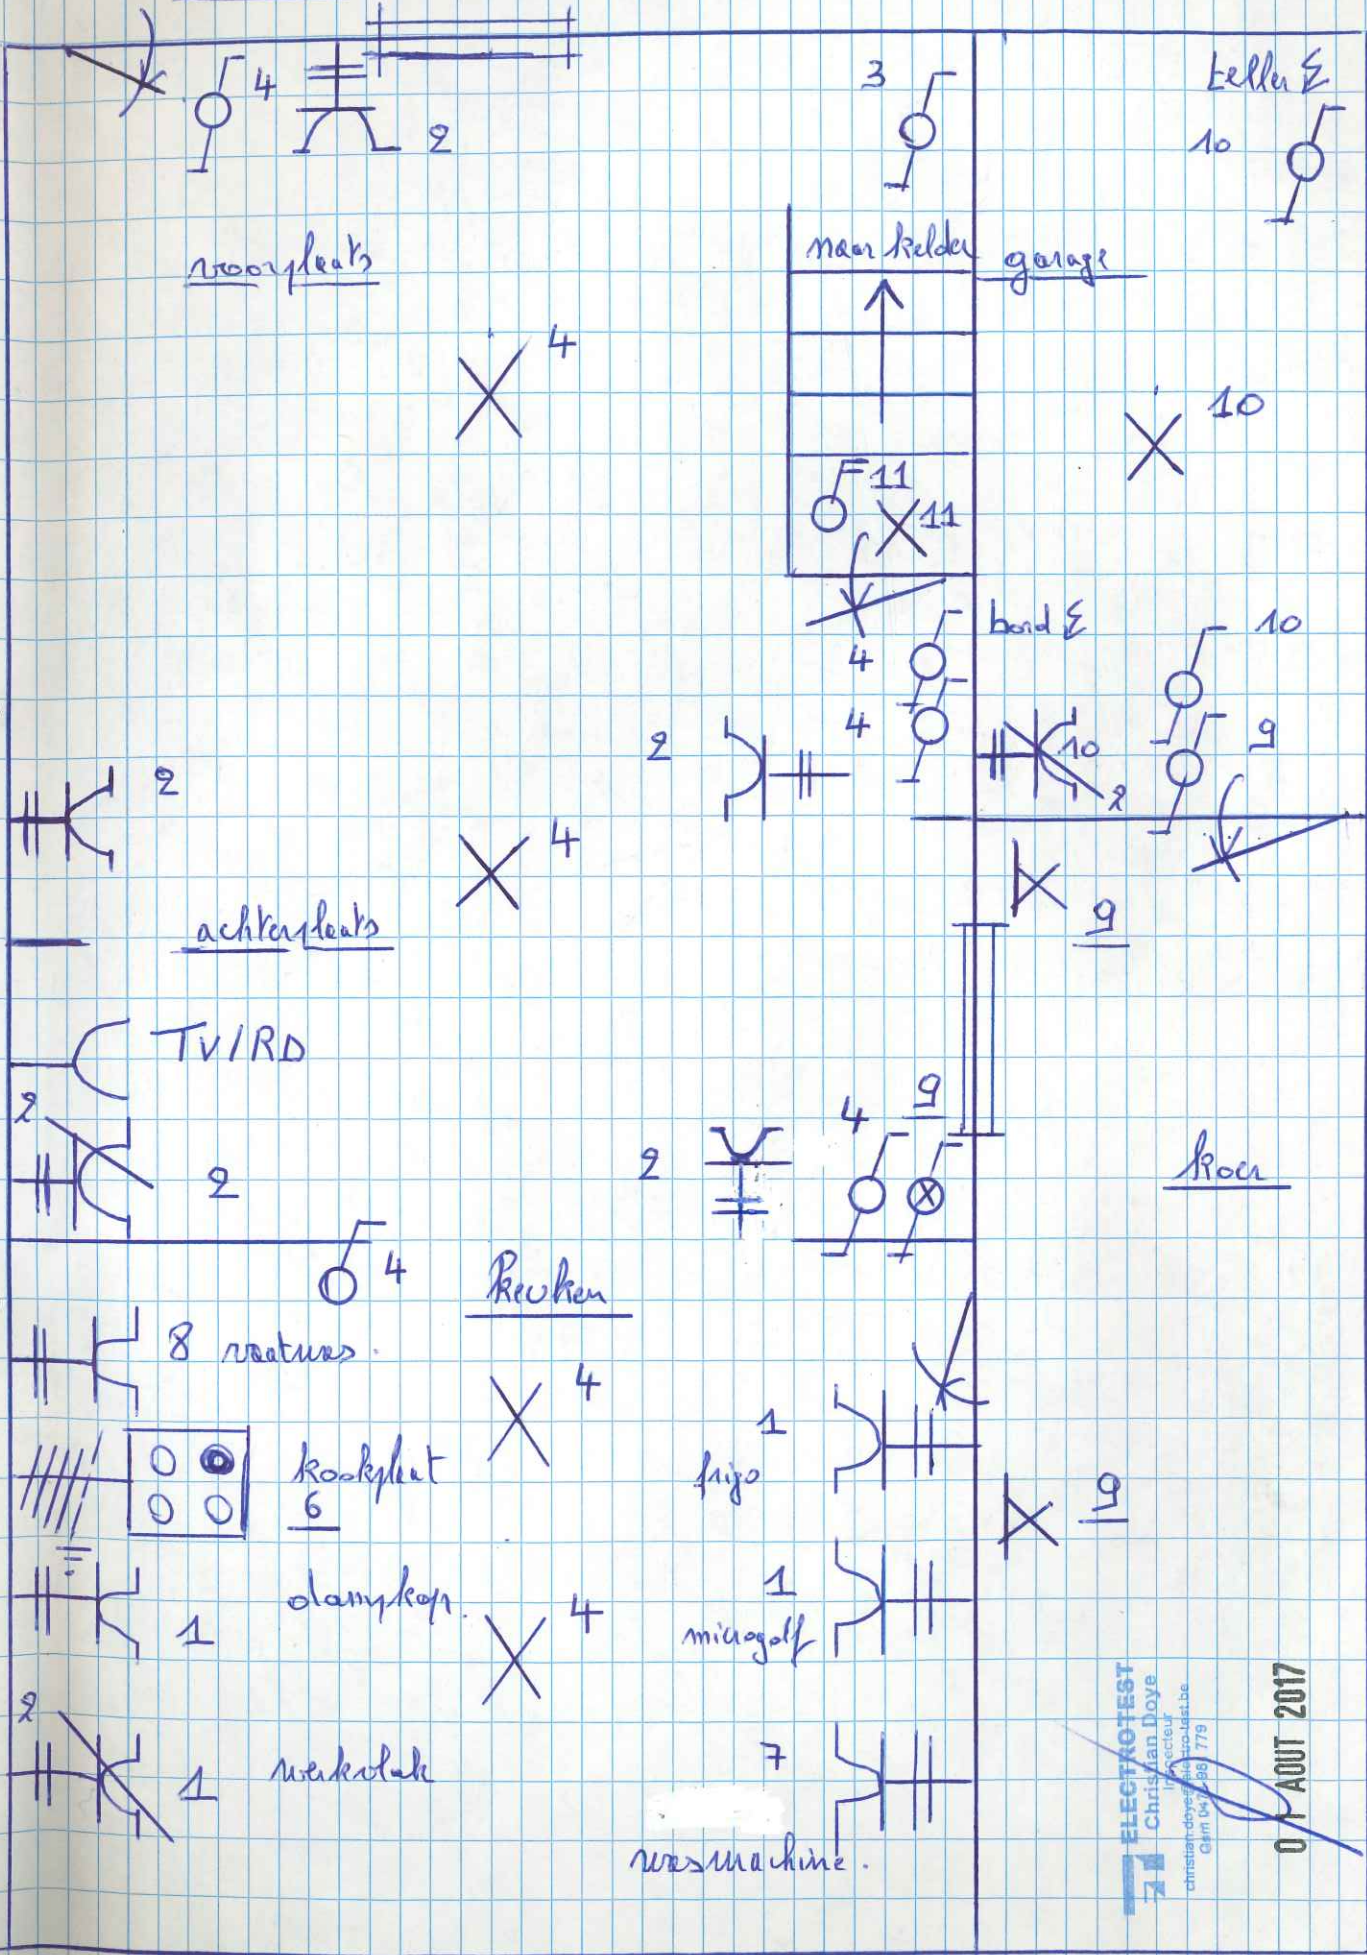 teller E
4
2
3
10
voorplaats
naar kelder
garage
4
10
11
11
bord E
10
4
4
2
10
9
2
2
4
9
achterplaats
TV/RD
2
2
2
4
9
koer
4
Keuken
8 vaatwas.
4
1
frigo
kookplaat
6
9
dampkap.
1
4
1
microgolf
2
1
werkvlak
7
wasmachine.
ELECTROTEST
Christian Doye
Inspecteur
01 AOUT 2017